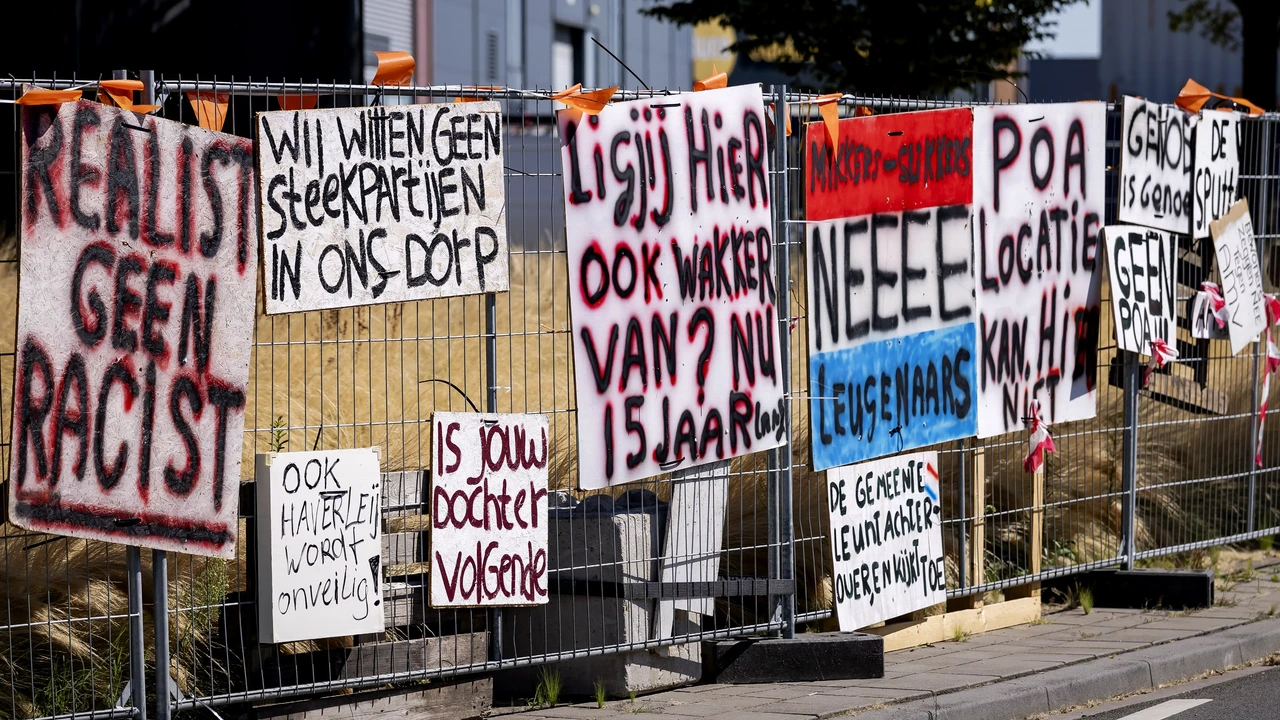 REALIST
GEEN
RACIST
WIJ WITTEN GEEN
STEEKPARTIJEN
IN ONS DORP
OOK
HAVERLEIJ
WORDT
onveilig!
IS JOUW
DOCHTER
VOLGENDE
LIGJIJ HIER
OOK WAKKER
VAN? NU
15 JAAR Lang
MIKKERS-SLIKKERS
NEEEE
LEUGENAARS
DE GEMEENTE
LEUNT ACHTER-
OVER EN KIJKT TOE
POA
LOCATIE
KAN. HIER
NIET
IS GENOEG
GEEN
POA!!
DE